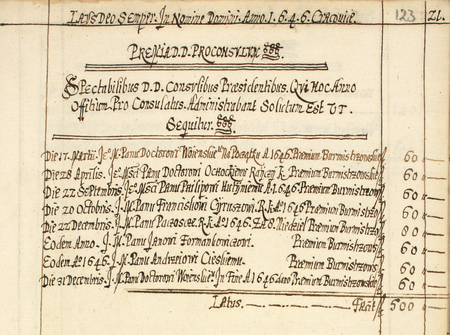 Laus Deo Semper. In Nomine Domini. Anno. 1.6.4.6. Cracoviæ. 123 Zl.
Premia D.D. Proconsulum
Spectabilibus D.D. Consulibus Præsidentibus. Qui Hoc Anno
Offitium Pro Consulatus. Administrabant Solutum Est Ut
Sequitur.
Die 17. Martii. Je° M. Panu Doctorowi na Początku A 1646. Premium Burmistrzowskie 60
Die 28 Aprilis. Je° Mści Panu Doctorowi Præmium Burmistrzowskie 60
Die 22 Septembris. Je° Mści Panu Philipowi A. 1646 Premium Burmistrzow 60
Die 20 Octobris. J° M. Panu Franciszkowi Cyruszowi. R.K. A° 1646 Præmium Burmistrz 60
Die 22 Decembris. J° M. Panu R.K. A° 1646. Niedziel Premium Burmistrzow 80
Eodem Anno. J° M. Panu Janowi Præmium Burmistrzow 60
Eodem A° 1646. J° M. Panu Andrzeiowi Cieskiemu. Premium Burmistrzows 60
Die 31 Decembris. J° M. Panu Doctorowi In Fine A 1646 Premium Burmistrzowskie 60
Latus. Facit 500